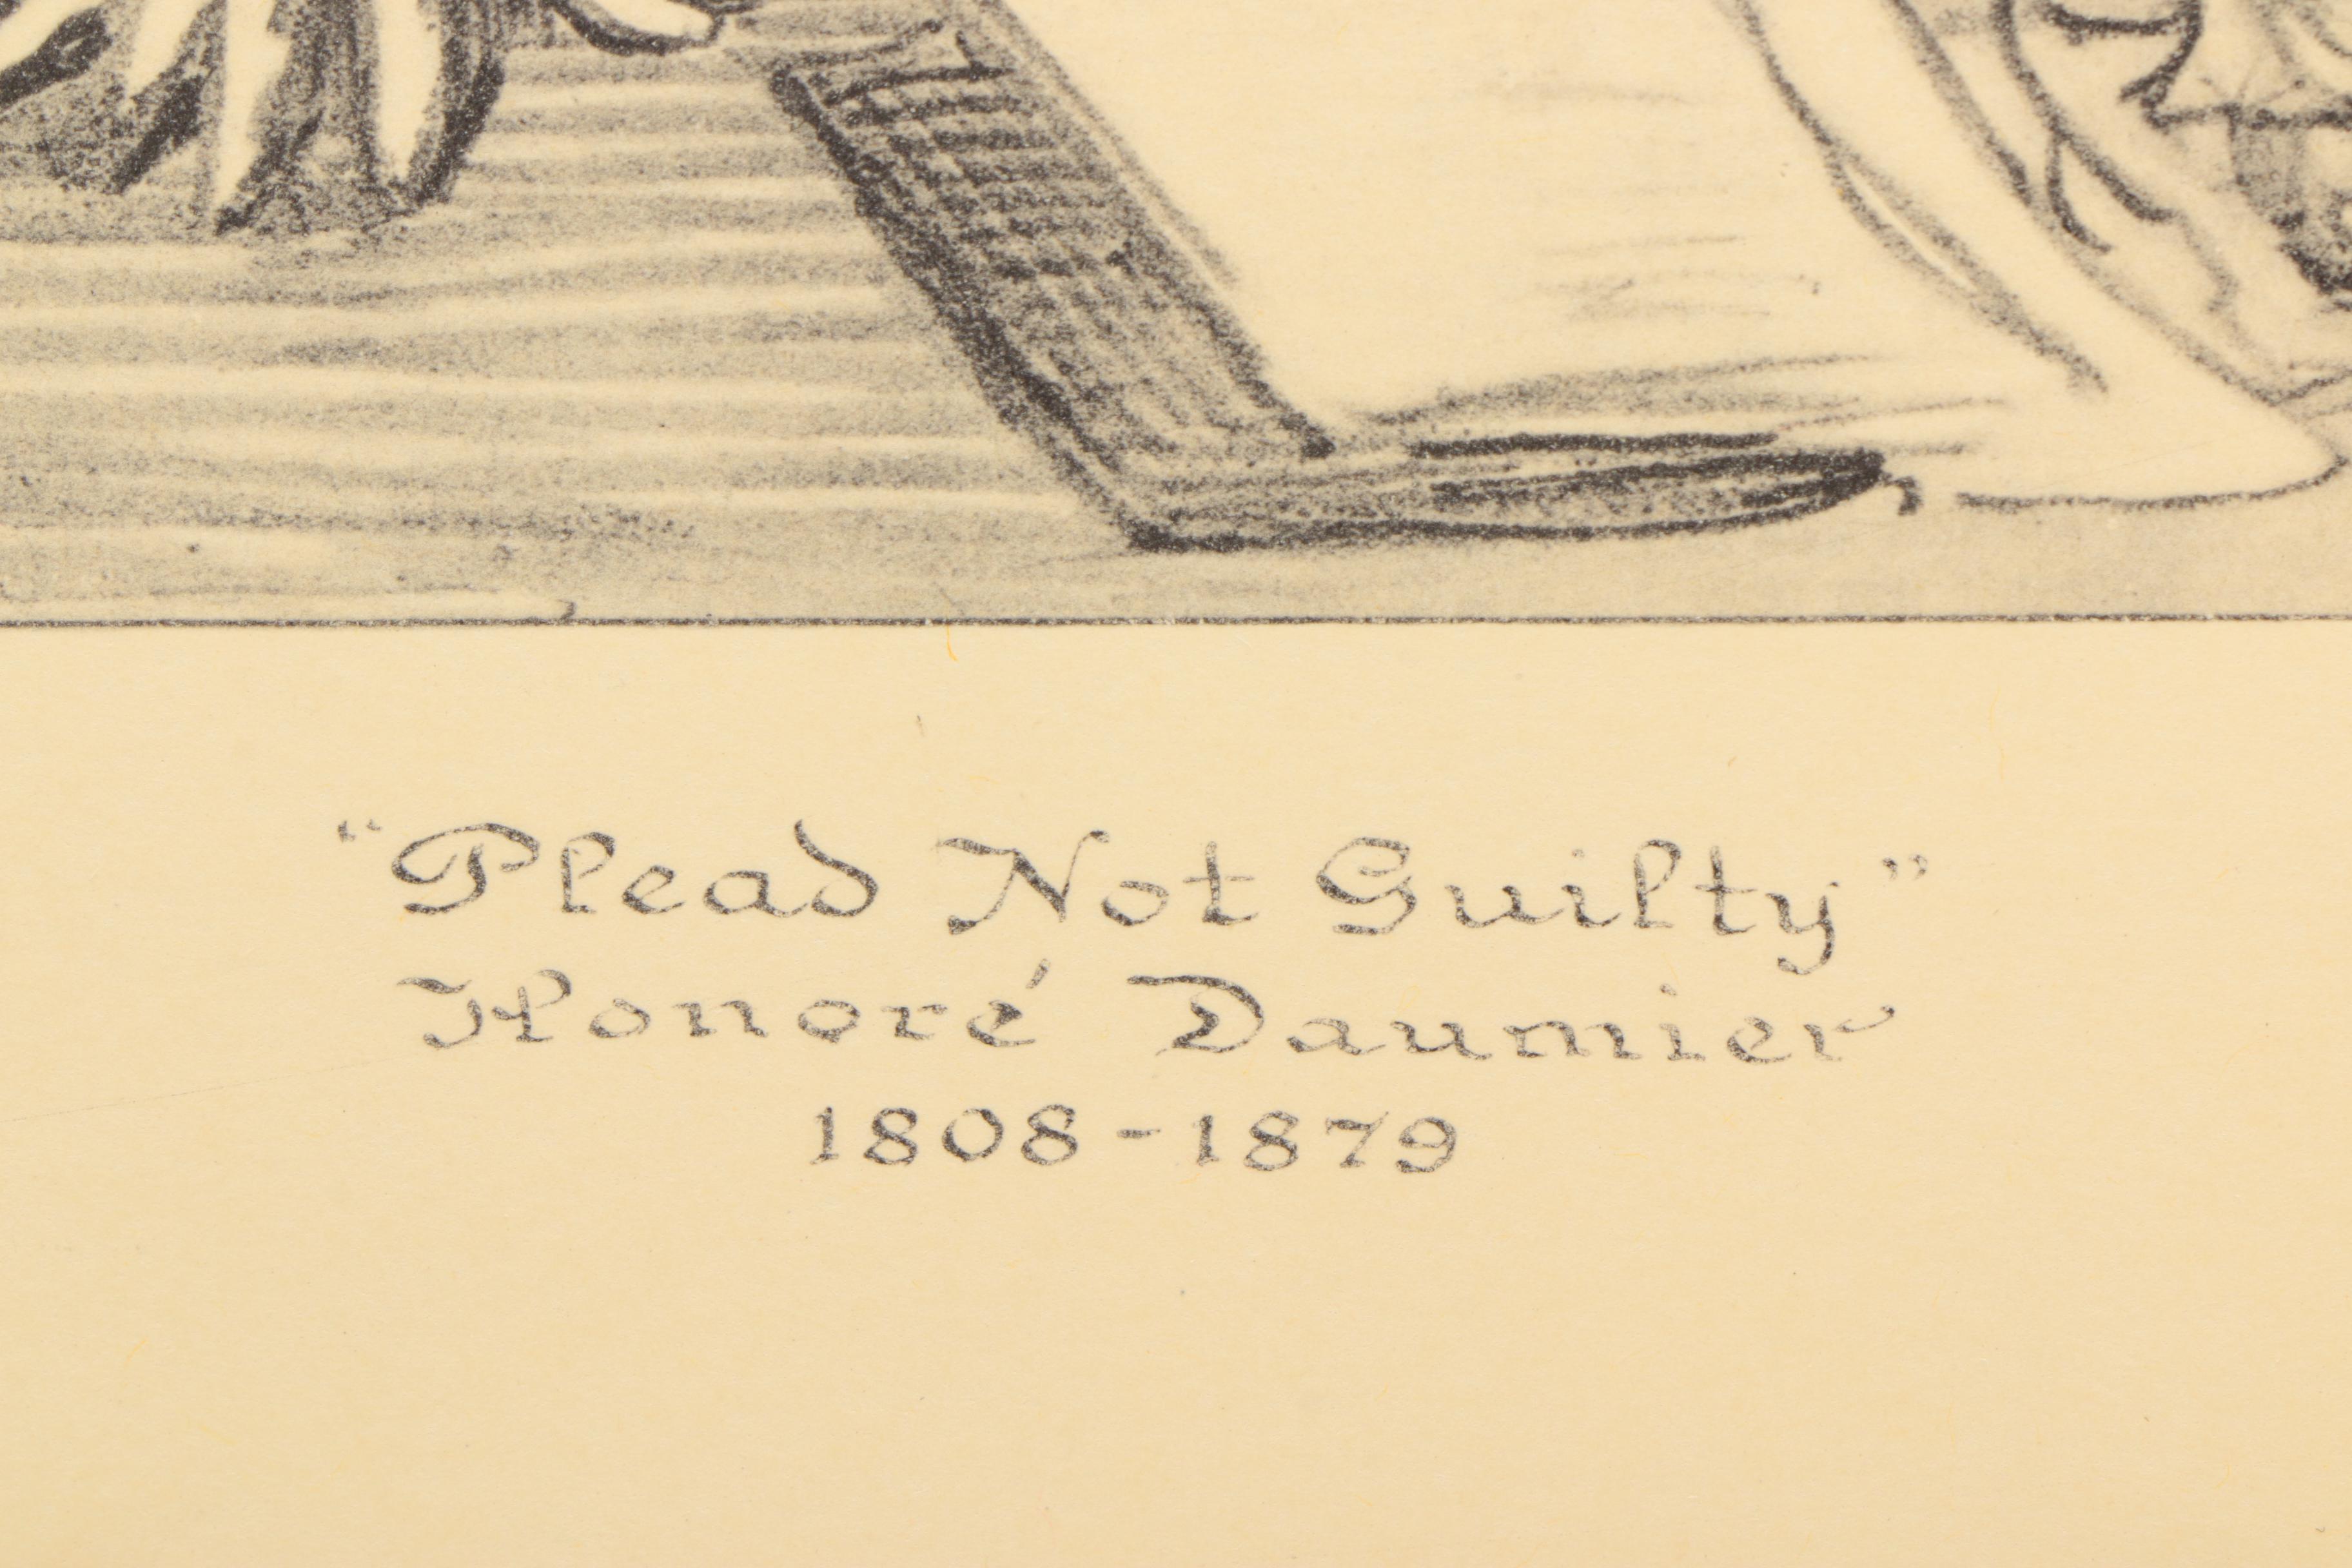 “Plead Not Guilty”
Honoré Daumier
1808-1879